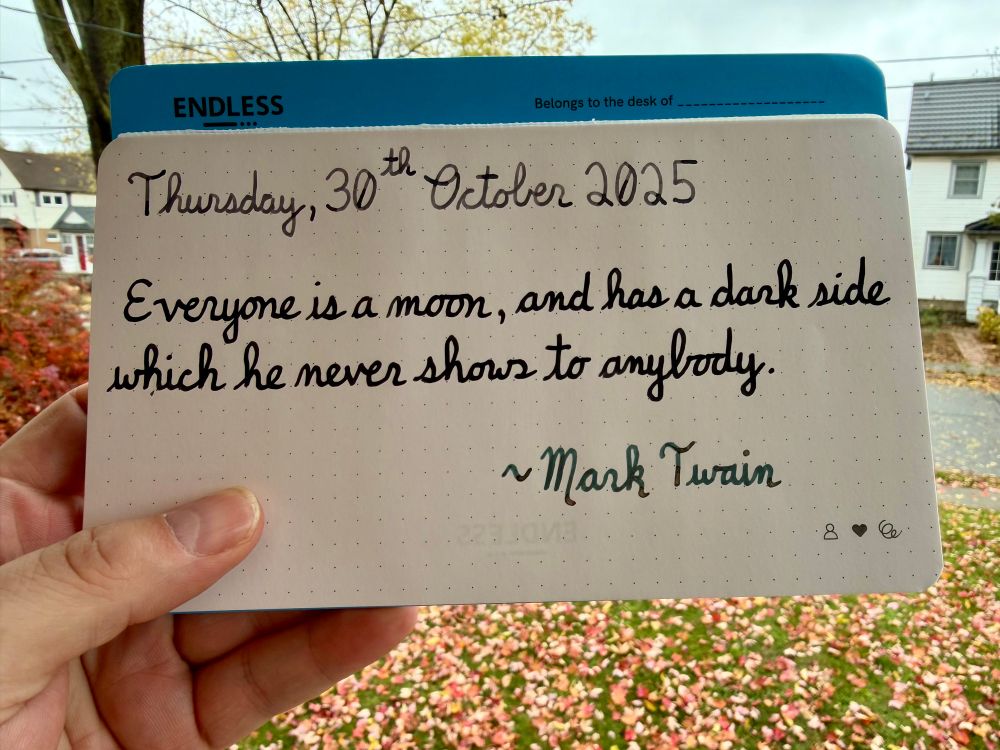 ENDLESS
Belongs to the desk of ____________________
Thursday, 30th October 2025
Everyone is a moon, and has a dark side
which he never shows to anybody.
~Mark Twain
ENDLESS